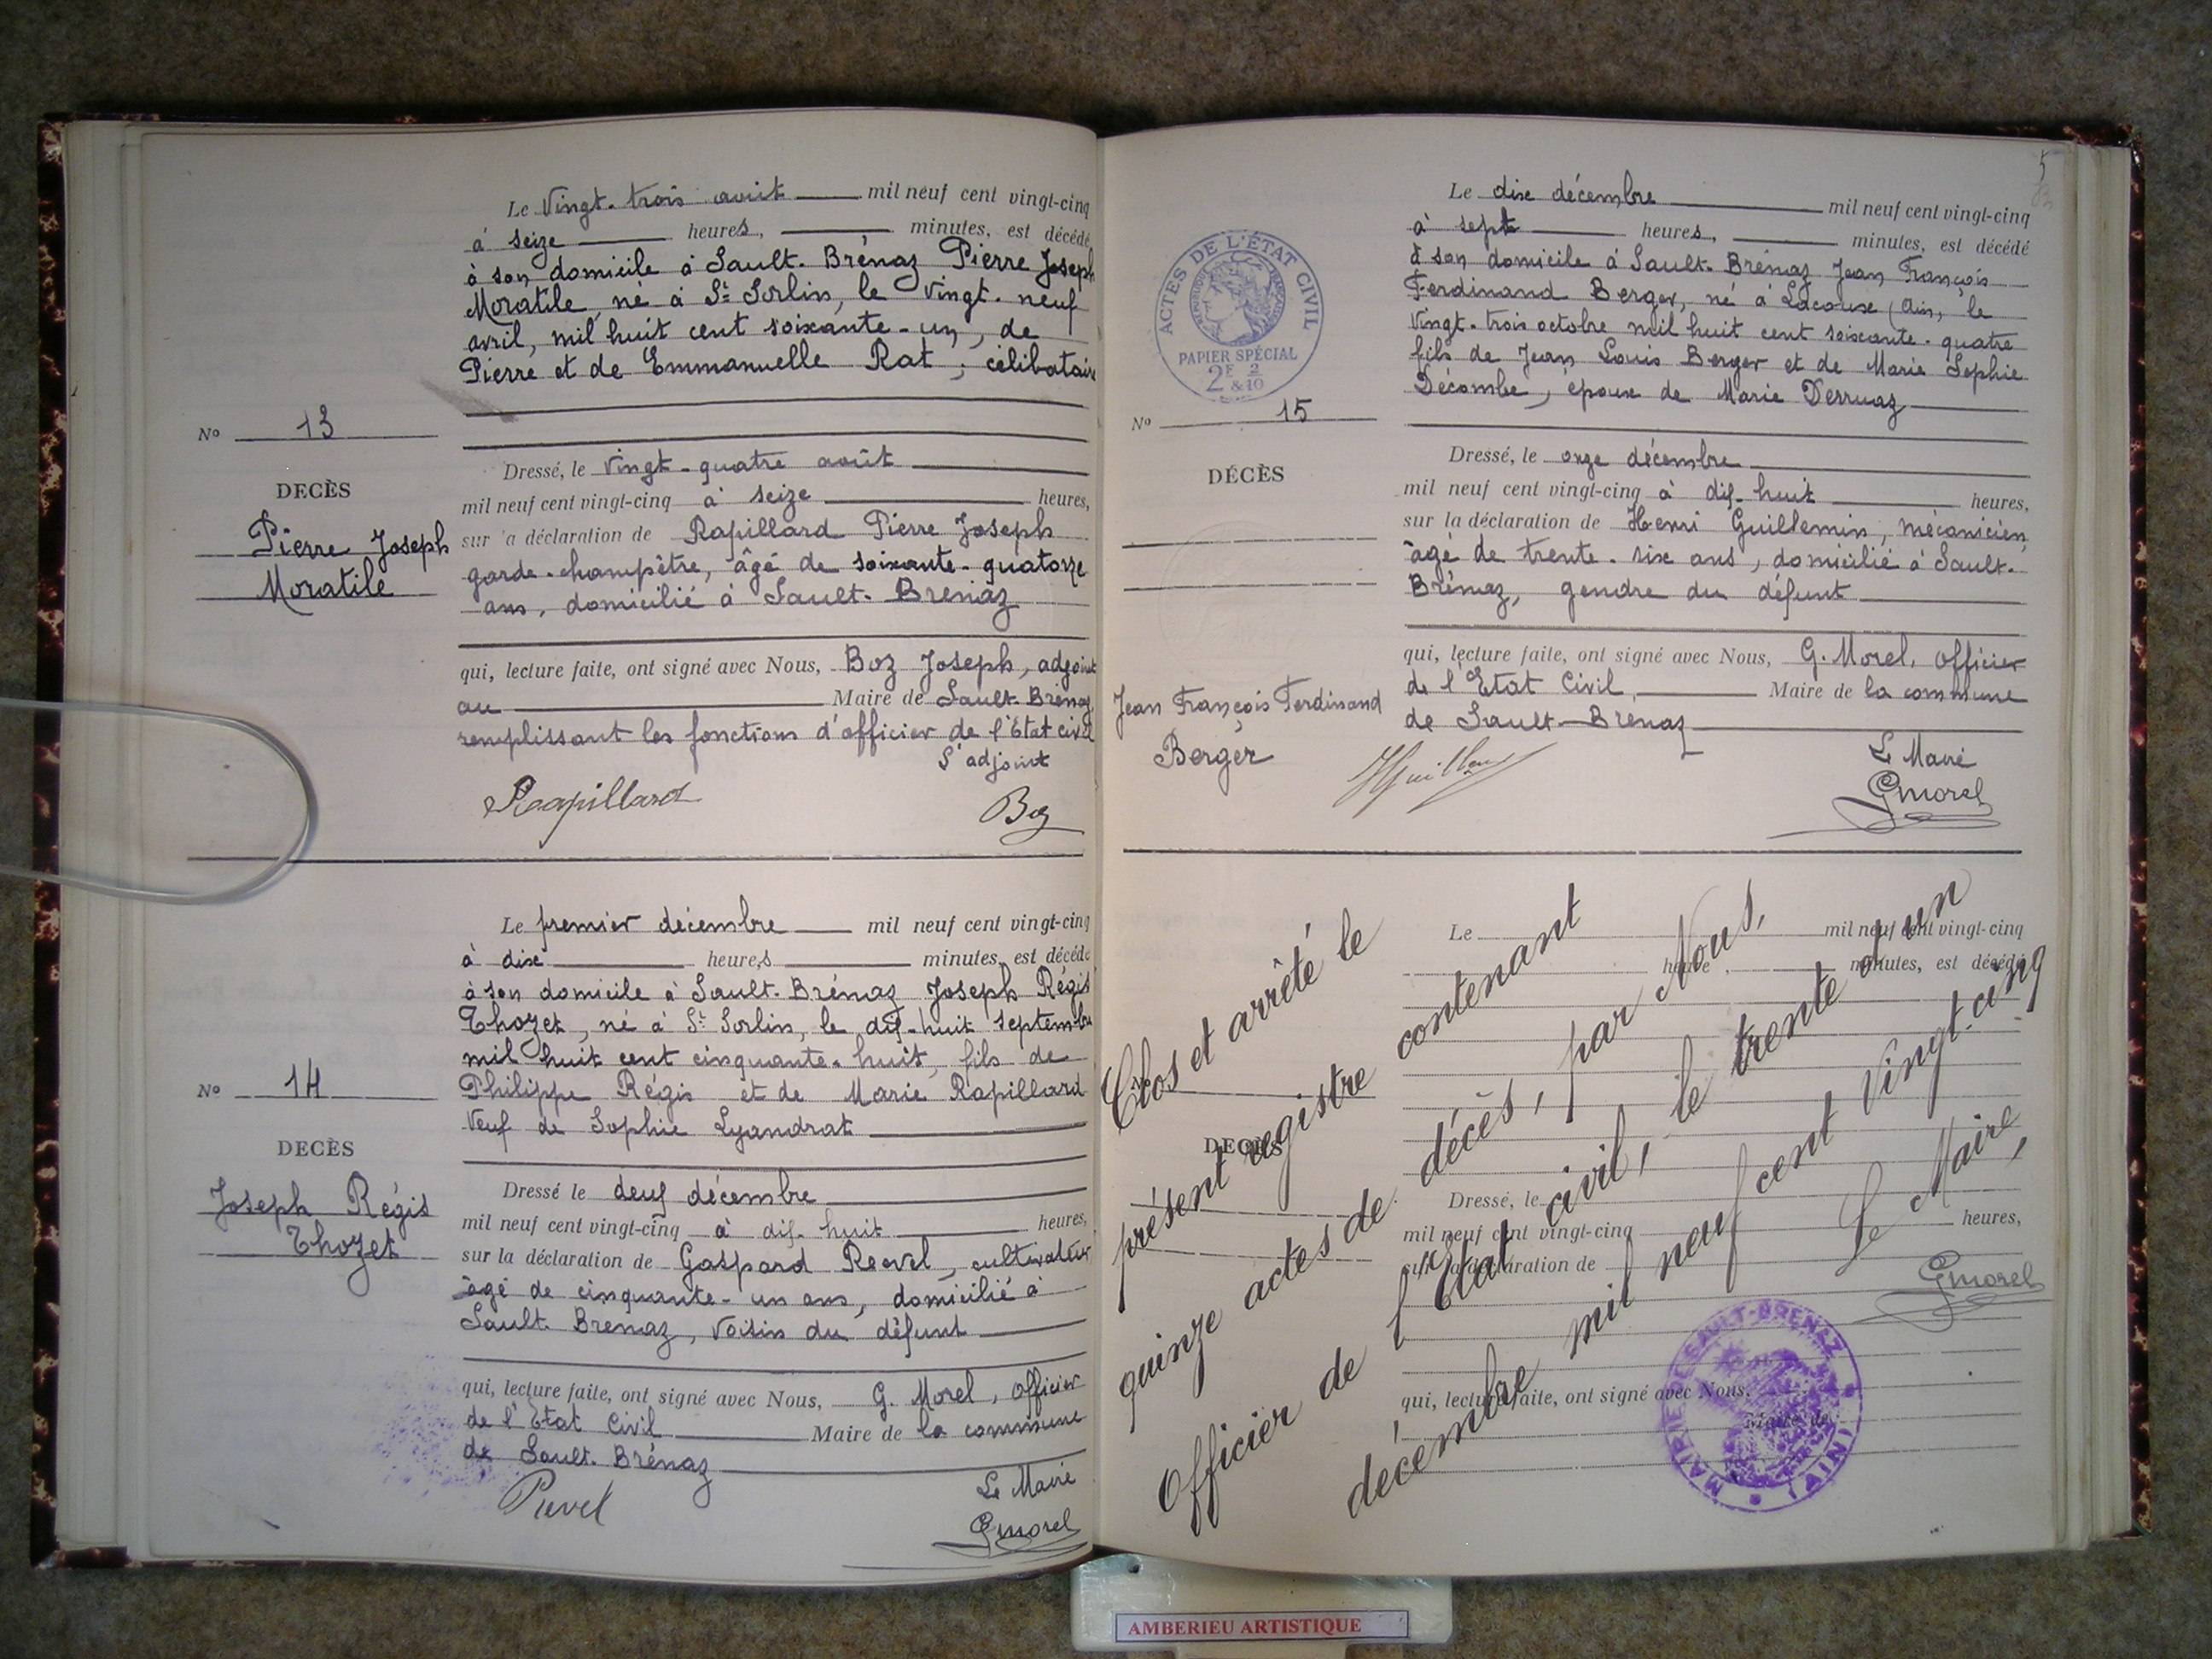 Le Vingt-trois août mil neuf cent vingt-cinq
à seize heures, minutes, est décédé
à son domicile à Sault-Brénaz Pierre Joseph
Moratile, né à St Sorlin, le vingt-neuf
avril, mil huit cent soixante-un, de
Pierre et de Emmanuelle Rat, célibataire
No 13
DECÈS
Pierre Joseph
Moratile
Dressé, le vingt-quatre août
mil neuf cent vingt-cinq à seize heures,
sur a déclaration de Rapillard Pierre Joseph
garde-champêtre, âgé de soixante-quatorze
ans, domicilié à Sault-Brénaz
qui, lecture faite, ont signé avec Nous, Boz Joseph, adjoint
au Maire de Sault-Brénaz,
remplissant les fonctions d'officier de l'Etat civil
L'adjoint
Rapillard
Boz
Le premier décembre mil neuf cent vingt-cinq
à dix heures minutes, est décédé
à son domicile à Sault-Brénaz Joseph Régis
Thozet, né à St Sorlin, le dix-huit septembre
mil huit cent cinquante-huit, fils de
Philippe Régis et de Marie Rapillard
Veuf de Sophie Lyandrat
No 14
DECÈS
Joseph Régis
Thozet
Dressé le deux décembre
mil neuf cent vingt-cinq à dix-huit heures,
sur la déclaration de Gaspard Revel, cultivateur
âgé de cinquante-un ans, domicilié à
Sault-Brénaz, voisin du défunt
qui, lecture faite, ont signé avec Nous, G. Morel, Officier
de l'Etat Civil Maire de la commune
de Sault-Brénaz
Le Maire
Revel
GMorel
5
Le dix décembre mil neuf cent vingt-cinq
à sept heures, minutes, est décédé
à son domicile à Sault-Brénaz Jean François
Ferdinand Berger, né à Lacoux (Ain, le
vingt-trois octobre mil huit cent soixante-quatre
fils de Jean Louis Berger et de Marie Sophie
Décombe, époux de Marie Derruaz
ACTES DE L'ÉTAT CIVIL
RÉPUBLIQUE FRANÇAISE
PAPIER SPÉCIAL
2F & 2/10
No 15
DÉCÈS
Jean François Ferdinand
Berger
Dressé, le onze décembre
mil neuf cent vingt-cinq à dix-huit heures,
sur la déclaration de Henri Guillemin, mécanicien,
âgé de trente-six ans, domicilié à Sault-
Brénaz, gendre du défunt
qui, lecture faite, ont signé avec Nous, G. Morel, Officier
de l'Etat Civil, Maire de la commune
de Sault-Brénaz
Le Maire
GMorel
Le mil neuf cent vingt-cinq
heure, minutes, est décédé
DECÈS
Dressé, le
mil neuf cent vingt-cinq heures,
sur la déclaration de
qui, lecture faite, ont signé avec Nous,
Maire de
Clos et arrêté le
présent registre contenant
quinze actes de décès, par Nous,
Officier de l'Etat civil, le trente et un
décembre mil neuf cent vingt-cinq
Le Maire,
GMorel
MAIRIE DE SAULT-BRENAZ (AIN)
AMBERIEU ARTISTIQUE